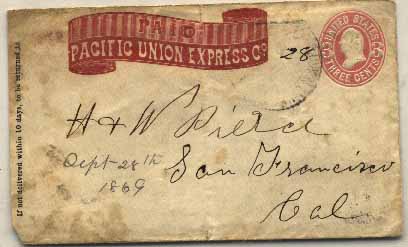 PAID
PACIFIC UNION EXPRESS Co
28
UNITED STATES
THREE CENTS
H & W Pierce
San Francisco
Cal
Sept 28th
1869
If not delivered within 10 days, to be returned to